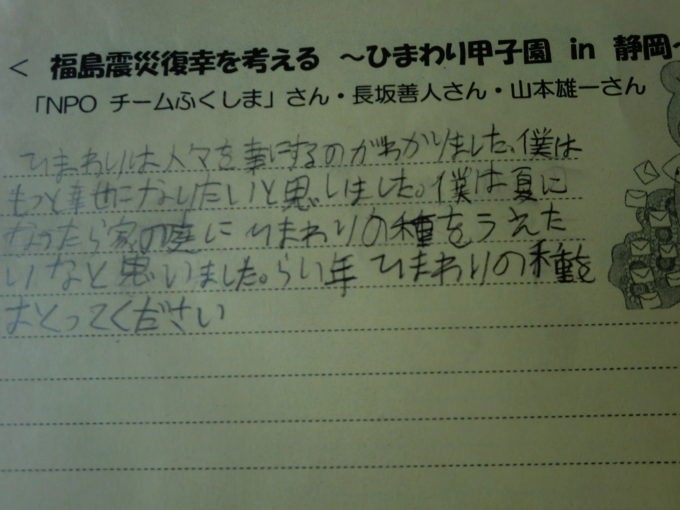 < 福島震災復幸を考える ～ひまわり甲子園 in 静岡～
「NPO チームふくしま」さん・長坂善人さん・山本雄一さん
ひまわりは人々を幸にするのがわかりました。僕は
もっと幸せになりたいと思いしました。僕は夏に
なったら家の庭にひまわりの種をうえた
いなと思いました。らい年ひまわりの種を
おとってください